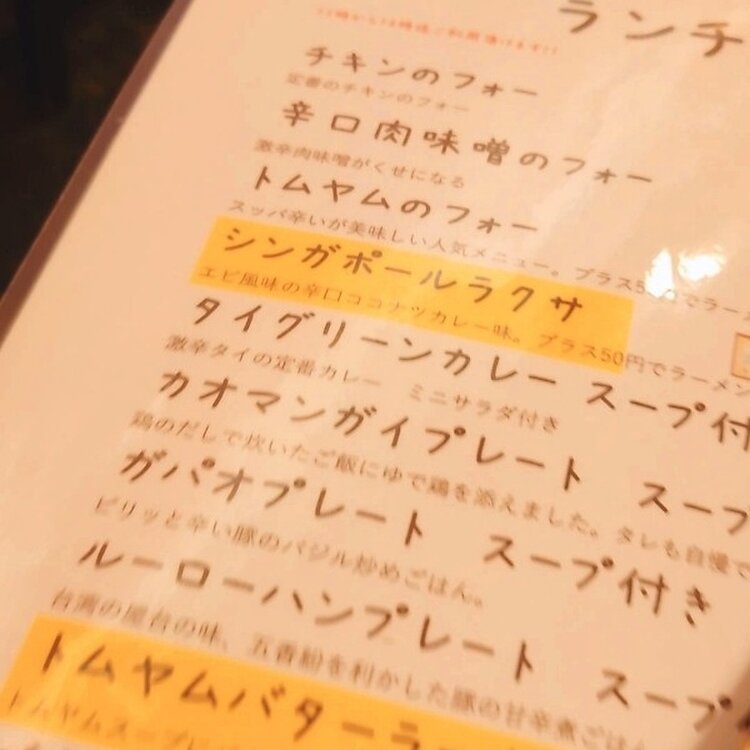 ランチ
チキンのフォー
定番のチキンのフォー
辛口肉味噌のフォー
激辛肉味噌がくせになる
トムヤムのフォー
スッパ辛いが美味しい人気メニュー。プラス50円でラーメ
シンガポールラクサ
エビ風味の辛口ココナツカレー味。プラス50円でラーメン
タイグリーンカレー スープ付
激辛タイの定番カレー ミニサラダ付き
カオマンガイプレート スープ
鶏のだしで炊いたご飯にゆで鶏を添えました。タレも自慢で
ガパオプレート スープ付き
ピリッと辛い豚のバジル炒めごはん。
ルーローハンプレート スープ
台湾の屋台の味、五香粉を利かした豚の甘辛煮ごは
トムヤムバターラ
トムヤムスープに